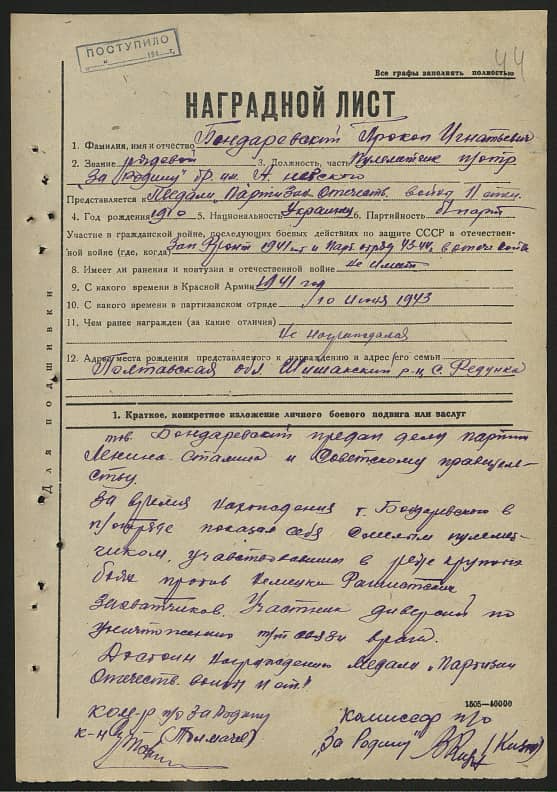 ПОСТУПИЛО
44
Все графы заполнять полностью
НАГРАДНОЙ ЛИСТ
1. Фамилия, имя и отчество Бондаревский Прокоп Игнатьевич
2. Звание рядовой 3. Должность, часть Пулеметчик п/отр
"За Родину" бр. им. А. Невского
Представляется к Медали "Партизан Отечеств. войны" II степ.
4. Год рождения 1910 5. Национальность Украинец 6. Партийность б/парт
Участие в гражданской войне, последующих боевых действиях по защите СССР в отечествен-
ной войне (где, когда) Зап. Фронт 1941 г и парт. отряд 43-44, в отеч. войне
8. Имеет ли ранения и контузии в отечественной войне Не имеет
9. С какого времени в Красной Армии 1941 год
10. С какого времени в партизанском отряде 10 Июня 1943
11. Чем ранее награжден (за какие отличия)
Не награждался
12. Адрес места рождения представляемого к награждению и адрес его семьи
Полтавская обл Шишакский р-н, с. Федунка
Для подшивки
1. Краткое, конкретное изложение личного боевого подвига или заслуг
тов. Бондаревский предан делу партии
Ленина-Сталина и Советскому правитель-
ству.
За время нахождения т. Бондаревского в
п/отряде показал себя смелым пулемет-
чиком, участвовавшим в ряде крупных
боях против немецко фашистских
захватчиков. Участник диверсий по
уничтожению связи врага.
Достоин награждению медали "Партизан
Отечеств. войны II ст."
1505—10000
ком-р п/о За Родину
к-н (Толмачев)
Комиссар п/о
"За Родину"